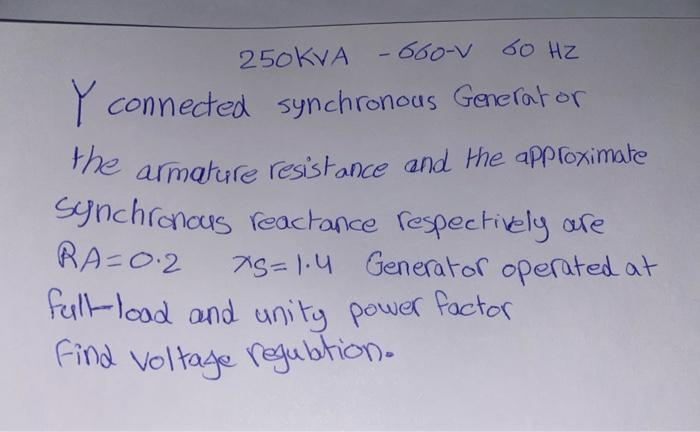 250KVA - 660-V 60 HZ
Y connected synchronous Generator
the armature resistance and the approximate
synchronous reactance respectively are
RA=0.2 xs=1.4 Generator operated at
full-load and unity power factor
Find voltage regubtion.